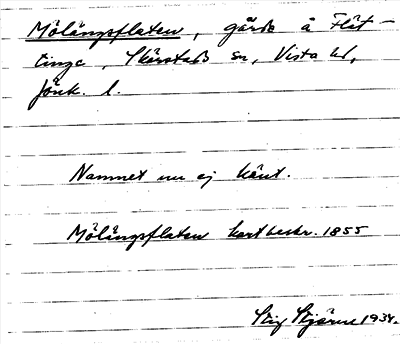 Mölängsflaten, gärde å Flät-
tinge, Skärstads sn, Vista hd,
Jönk. l.
Namnet nu ej känt.
Mölängsflaten kartbeskr. 1855
Stig Stjärne 1934.